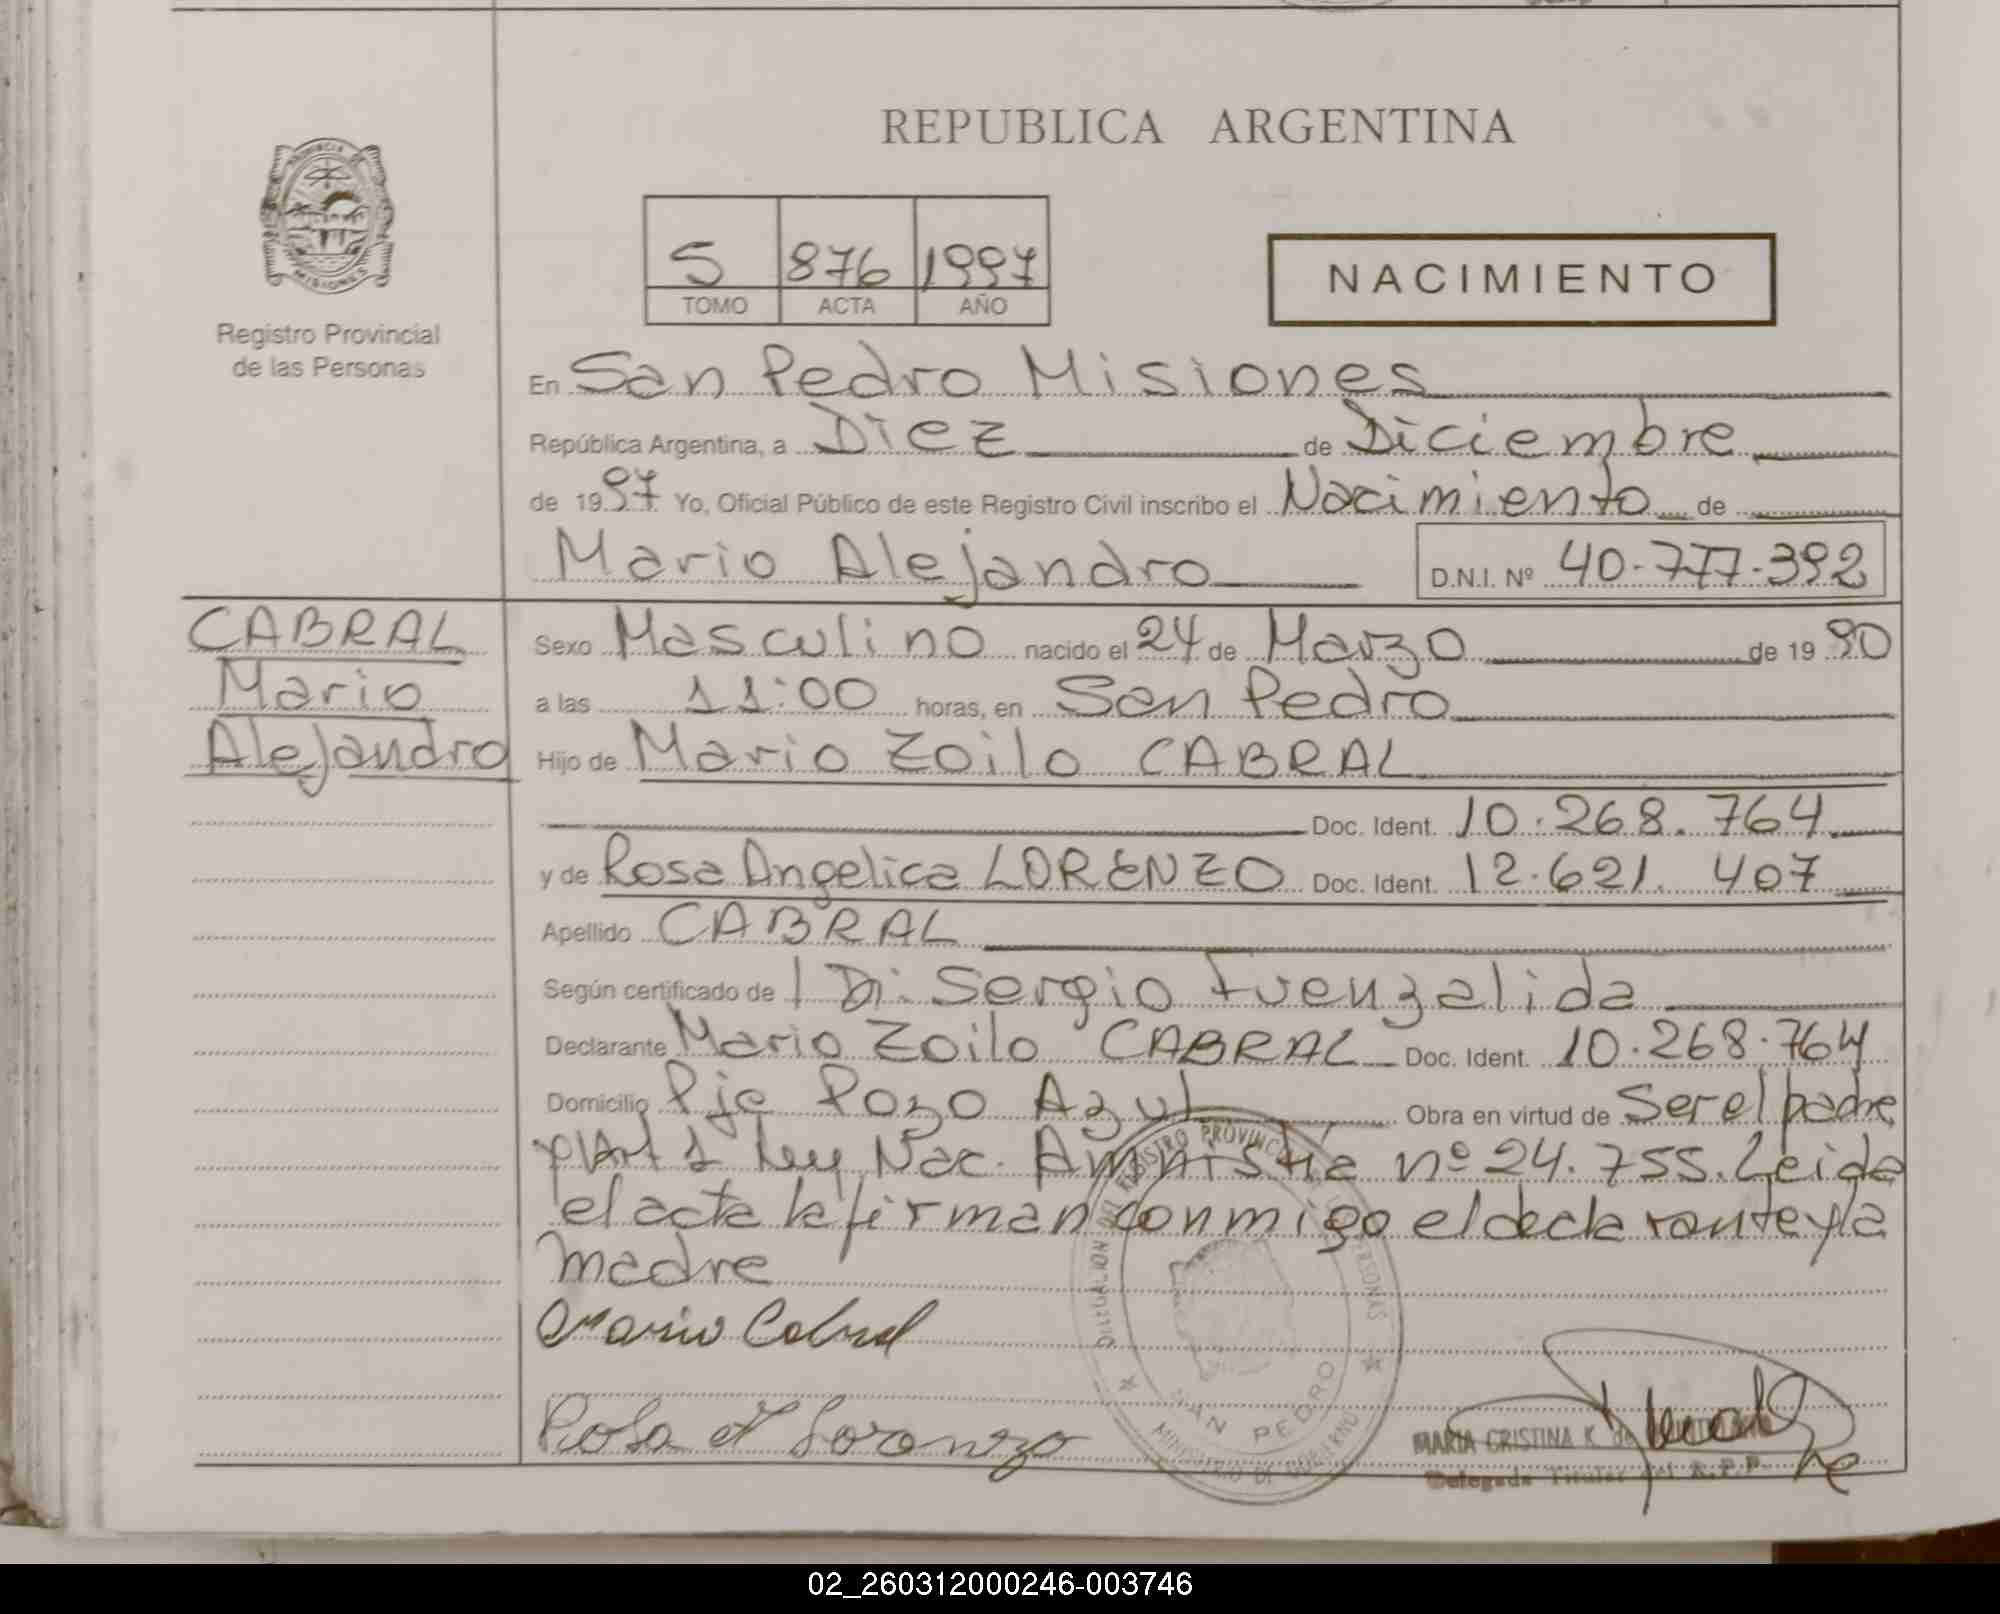 REPUBLICA ARGENTINA
PROVINCIA DE
MISIONES
Registro Provincial
de las Personas
5 876 1997
TOMO ACTA AÑO
NACIMIENTO
En San Pedro Misiones
República Argentina, a Diez de Diciembre
de 1997 Yo, Oficial Público de este Registro Civil inscribo el Nacimiento de
Mario Alejandro D.N.I. Nº 40.777.392
CABRAL
Mario
Alejandro
Sexo Masculino nacido el 24 de Marzo de 1990
a las 11:00 horas, en San Pedro
Hijo de Mario Zoilo CABRAL
Doc. Ident. 10.268.764
y de Rosa Angelica LORENZO Doc. Ident. 12.621.407
Apellido CABRAL
Según certificado de Dr. Sergio Fuenzalida
Declarante Mario Zoilo CABRAL Doc. Ident. 10.268.764
Domicilio Pje Pozo Azul Obra en virtud de Ser el padre
y Art 1 Ley Nac. Amnistia nº 24.755. Leida
el acta la firman conmigo el declarante y la
madre
Mario Cabral
Rosa A Lorenzo
REGISTRO PROVINCIAL DE LAS PERSONAS
SAN PEDRO
MINISTERIO DE GOBIERNO
MARIA CRISTINA K. de
Delegada Titular del R.P.P.
02_260312000246-003746